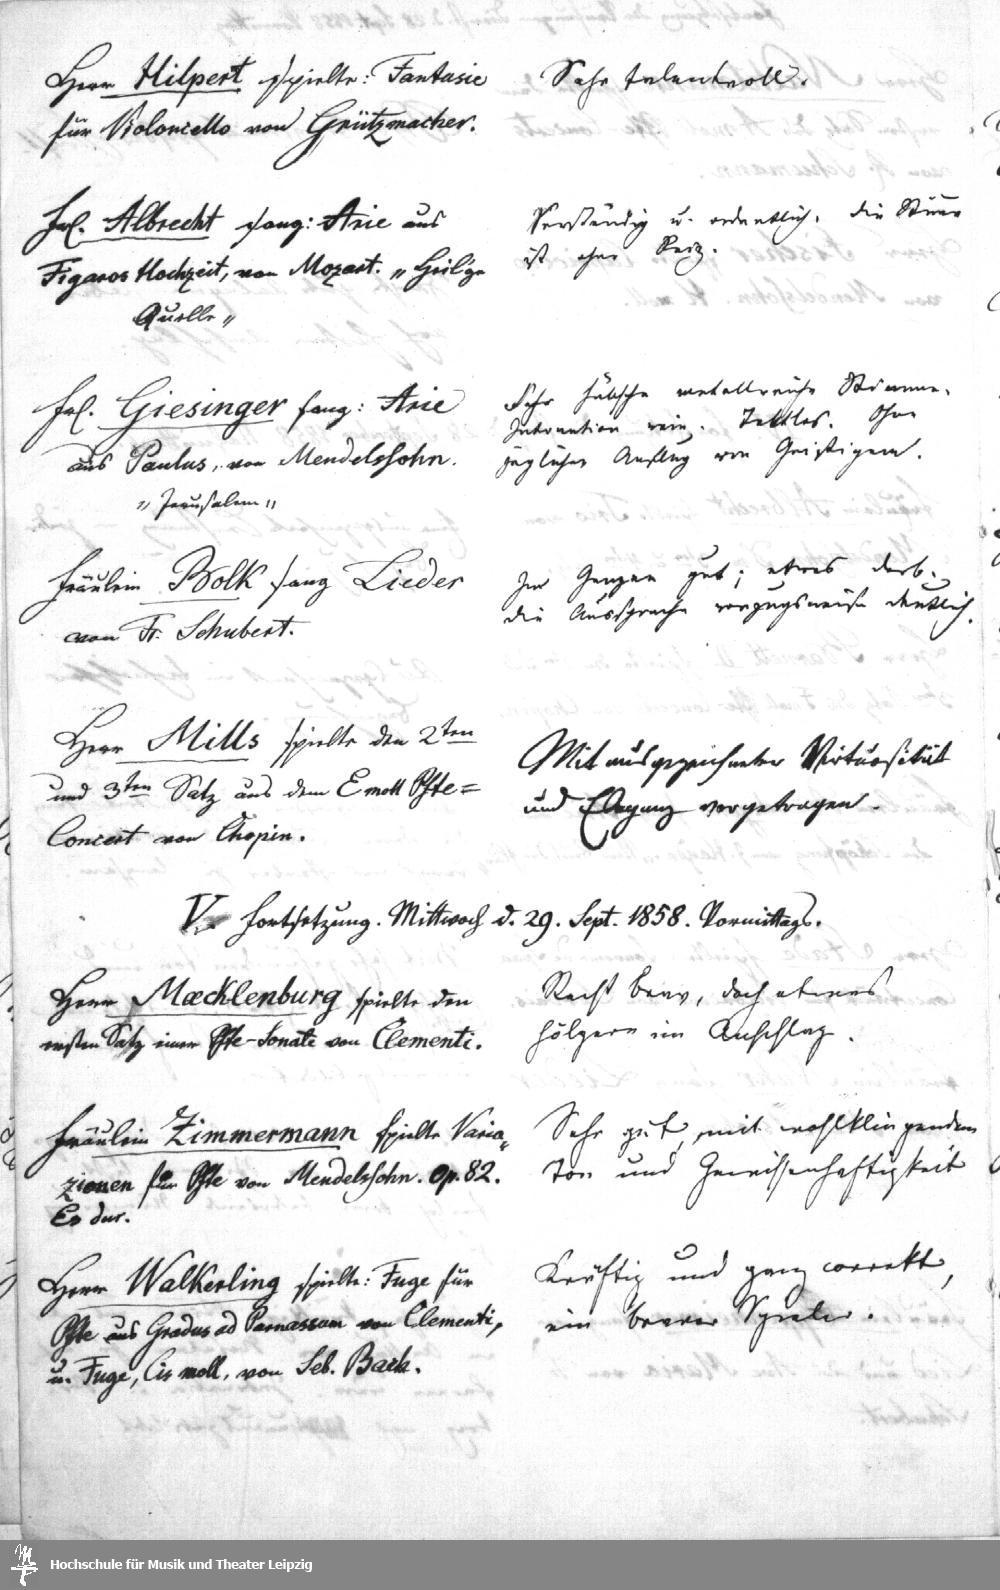 Herr Hilpert spielte: Fantasie
für Violoncello von Grützmacher.
Sehr talentvoll.
Frl. Albrecht sang: Arie aus
Figaros Hochzeit, von Mozart. „Heilge
Quelle"
Verständig u. ordentlich. die Stimme
ist ohne Reiz.
Frl. Giesinger sang: Arie
aus Paulus, von Mendelssohn.
„Jerusalem"
Sehr hübsche metallreiche Stimme.
Intonation rein. Taktlos. Ohne
jeglichen Anflug von Geistigem.
Fräulein Bolk sang Lieder
von Fr. Schubert.
Im Ganzen gut; etwas derb.
die Aussprache vorzugsweise deutlich.
Herr Mills spielte den 2ten
und 3ten Satz aus dem E moll Pfte=
Concert von Chopin.
Mit ausgezeichneter Virtuosität
und Eleganz vorgetragen.
V. Fortsetzung. Mittwoch d. 29. Sept. 1858. Vormittags.
Herr Mecklenburg spielte den
ersten Satz einer Pfte-Sonate von Clementi.
Recht brav, doch etwas
hölzern im Anschlag.
Fräulein Zimmermann spielte Varia-
zionen für Pfte von Mendelssohn. Op. 82.
Es dur.
Sehr gut, mit wohlklingendem
Ton und Gewissenhaftigkeit
Herr Walkerling spielte: Fuge für
Pfte aus Gradus ad Parnassum von Clementi,
u. Fuge, Cis moll, von Seb. Bach.
Kräftig und ganz correkt,
ein braver Spieler.
Hochschule für Musik und Theater Leipzig